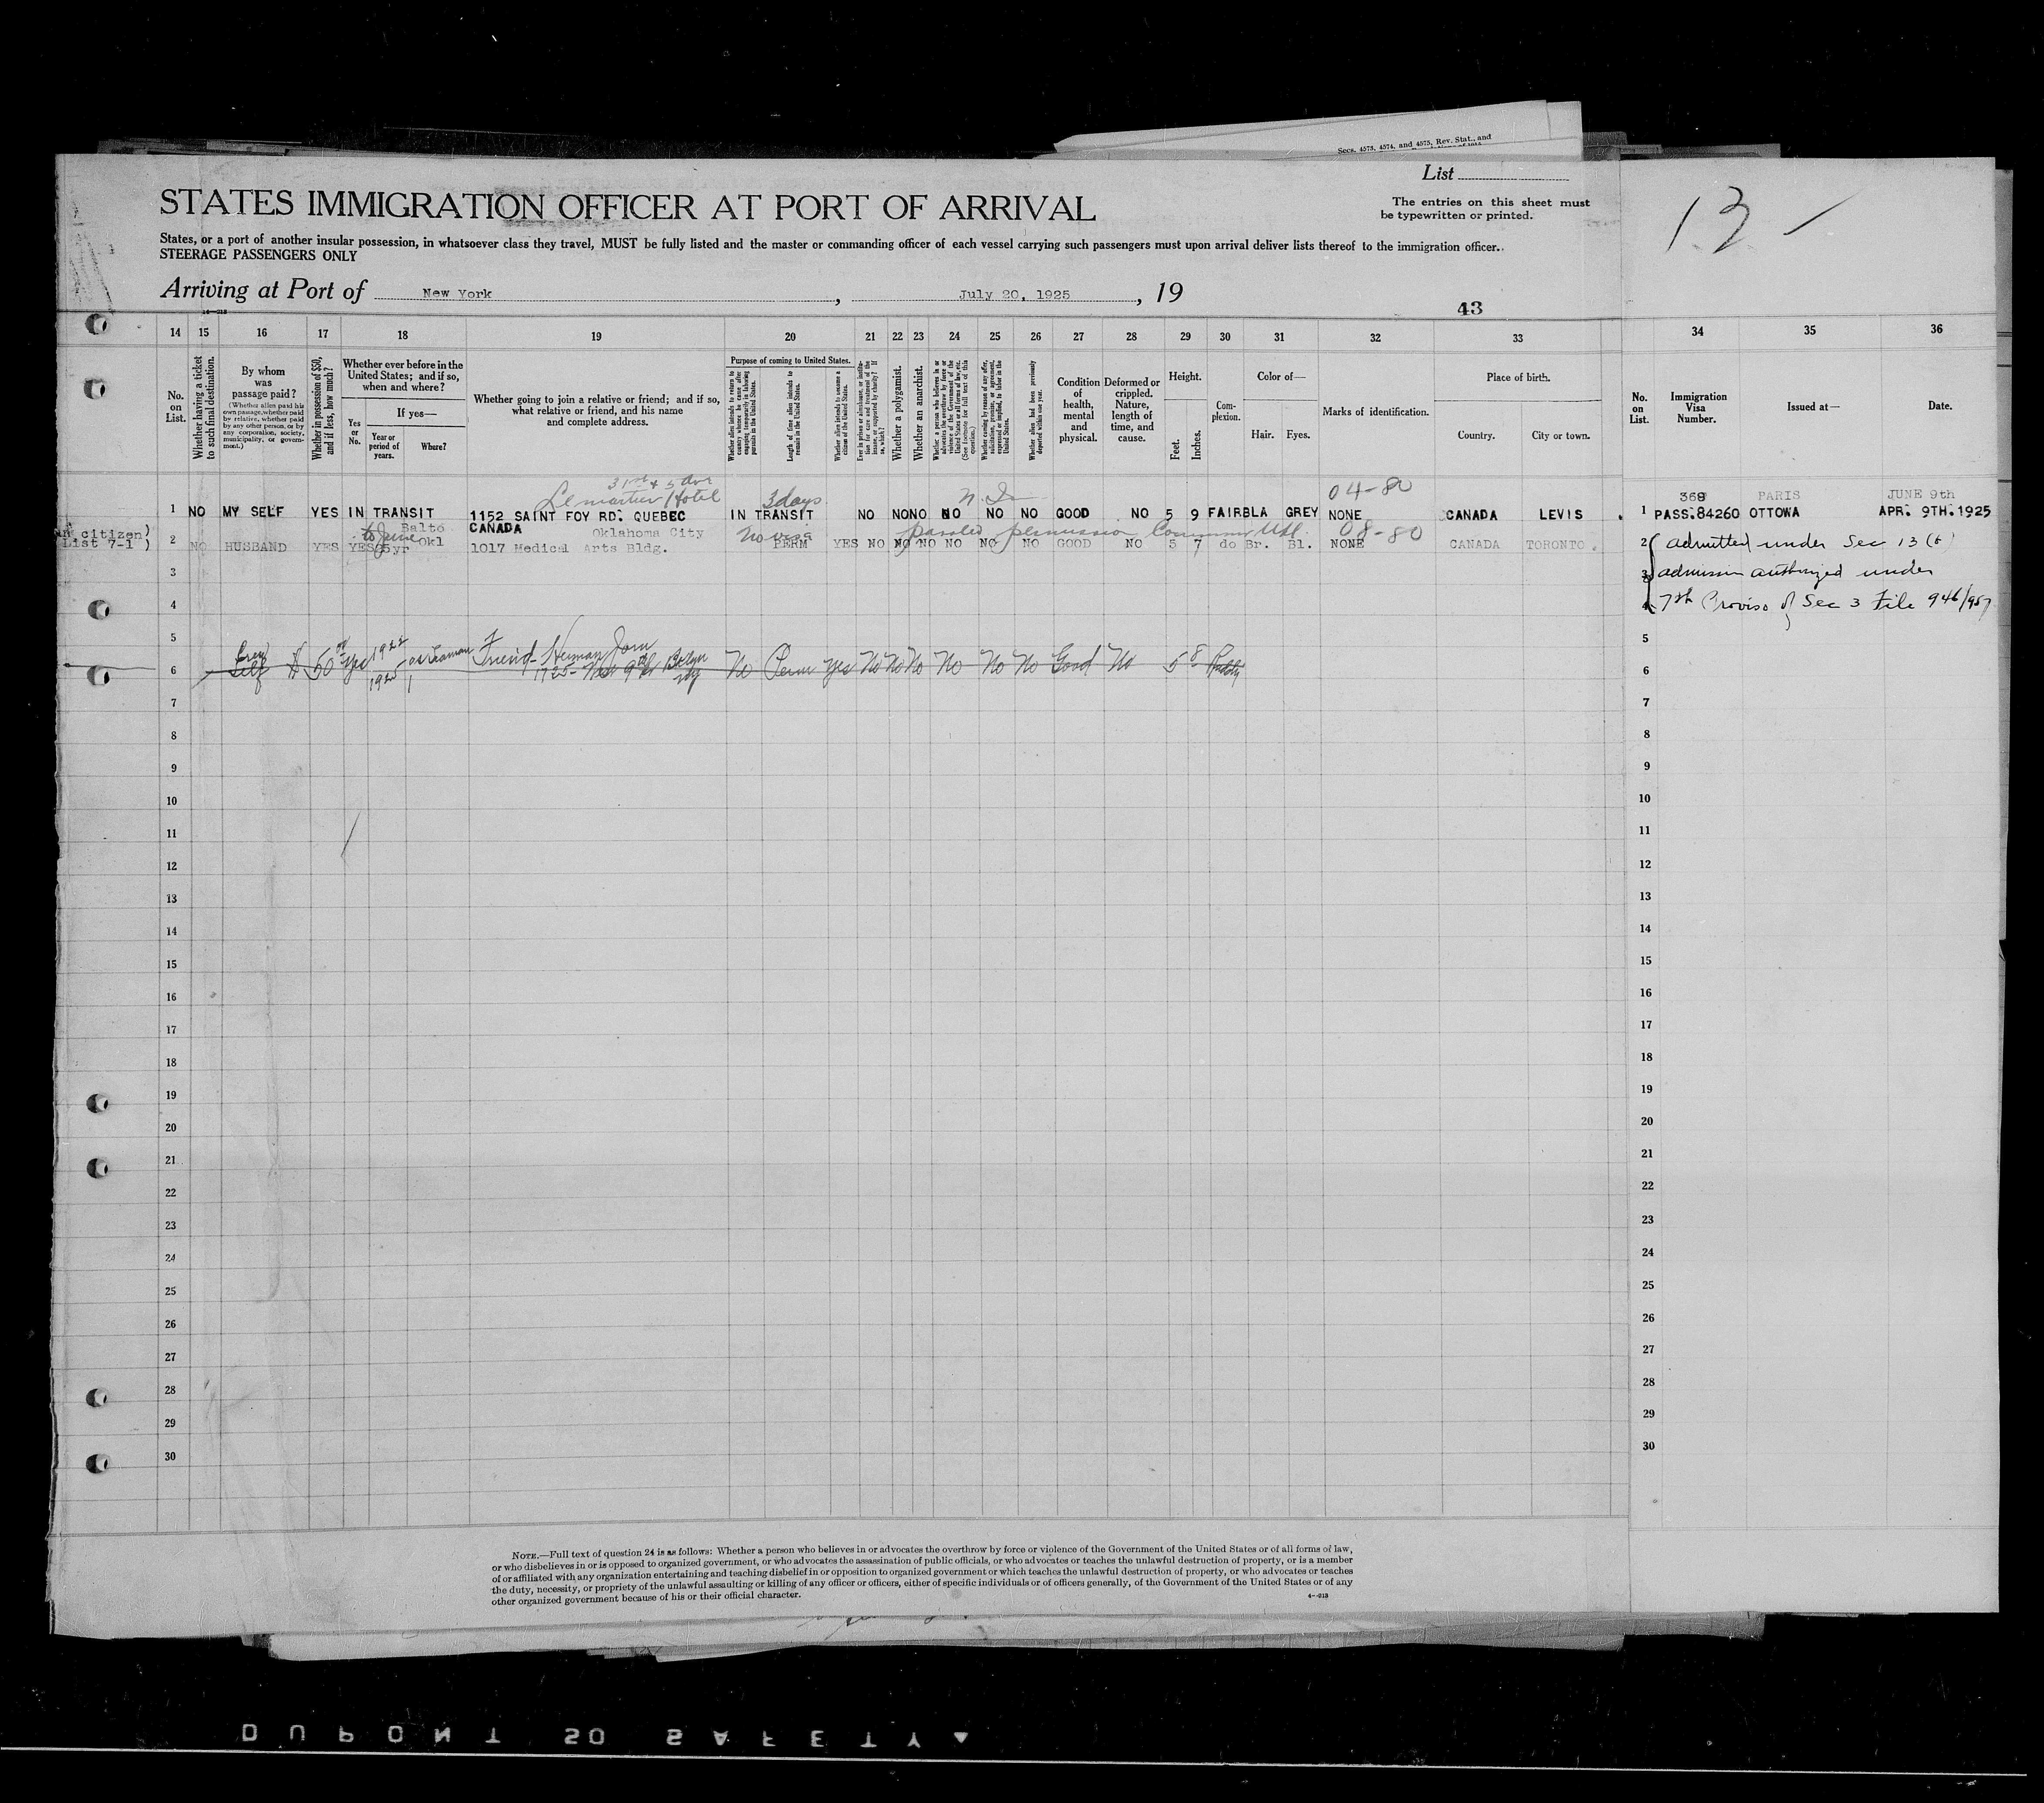 Secs. 4573, 4574, and 4575, Rev. Stat., and
List
STATES IMMIGRATION OFFICER AT PORT OF ARRIVAL
The entries on this sheet must
be typewritten or printed.
13
States, or a port of another insular possession, in whatsoever class they travel, MUST be fully listed and the master or commanding officer of each vessel carrying such passengers must upon arrival deliver lists thereof to the immigration officer.
STEERAGE PASSENGERS ONLY
Arriving at Port of New York, July 20, 1925, 19
43
14 15 16 17 18 19 20 21 22 23 24 25 26 27 28 29 30 31 32 33 34 35 36
No. on List.
Whether having a ticket to such final destination.
By whom was passage paid?
(Whether alien paid his own passage, whether paid by relative, whether paid by any other person, or by any corporation, society, municipality, or government.)
Whether in possession of $50, and if less, how much?
Whether ever before in the United States; and if so, when and where?
Yes or No.
If yes—
Year or period of years.
Where?
Whether going to join a relative or friend; and if so, what relative or friend, and his name and complete address.
Purpose of coming to United States.
Whether alien intends to return to country whence he came after engaging temporarily in laboring pursuits in the United States.
Length of time alien intends to remain in the United States.
Whether alien intends to become a citizen of the United States.
Ever in prison or almshouse, or institution for care and treatment of the insane, or supported by charity? If so, which?
Whether a polygamist.
Whether an anarchist.
Whether a person who believes in or advocates the overthrow by force or violence of the Government of the United States or all forms of law, etc. (See footnote for full text of this question.)
Whether coming by reason of any offer, solicitation, promise, or agreement, expressed or implied, to labor in the United States.
Whether alien had been previously deported within one year.
Condition of health, mental and physical.
Deformed or crippled. Nature, length of time, and cause.
Height.
Feet.
Inches.
Complexion.
Color of—
Hair.
Eyes.
Marks of identification.
Place of birth.
Country.
City or town.
No. on List.
Immigration Visa Number.
Issued at—
Date.
31st & 5 Ave
Hotel 3 days 04-80 369 PARIS JUNE 9th
1 NO MY SELF YES IN TRANSIT 1152 SAINT FOY RD. QUEBEC IN TRANSIT NO NO NO NO NO NO GOOD NO 5 9 FAIR BLA GREY NONE CANADA LEVIS 1 PASS.84260 OTTOWA APR. 9TH.1925
citizen) to June Balto CANADA Oklahoma City No visa passed permission 08-80
List 7-1 ) 2 NO HUSBAND YES YES 5yr Okl 1017 Medical Arts Bldg. PERM YES NO NO NO NO NO NO GOOD NO 5 7 do Br. Bl. NONE CANADA TORONTO 2 admitted under Sec 13 (b)
3 3 admission authorized under
4 4 7th Proviso of Sec 3 File 946/957
5 1922 as Seaman Friend Herman Jorn 5
6 Self $50 yes 1925 No Perm yes No No No No No No Good No 5 8 Ruddy 6
7 7
8 8
9 9
10 10
11 11
12 12
13 13
14 14
15 15
16 16
17 17
18 18
19 19
20 20
21 21
22 22
23 23
24 24
25 25
26 26
27 27
28 28
29 29
30 30
NOTE.—Full text of question 24 is as follows: Whether a person who believes in or advocates the overthrow by force or violence of the Government of the United States or of all forms of law,
or who disbelieves in or is opposed to organized government, or who advocates the assassination of public officials, or who advocates or teaches the unlawful destruction of property, or is a member
of or affiliated with any organization entertaining and teaching disbelief in or opposition to organized government or which teaches the unlawful destruction of property, or who advocates or teaches
the duty, necessity, or propriety of the unlawful assaulting or killing of any officer or officers, either of specific individuals or of officers generally, of the Government of the United States or of any
other organized government because of his or their official character.
DUPONT SO SAFETY